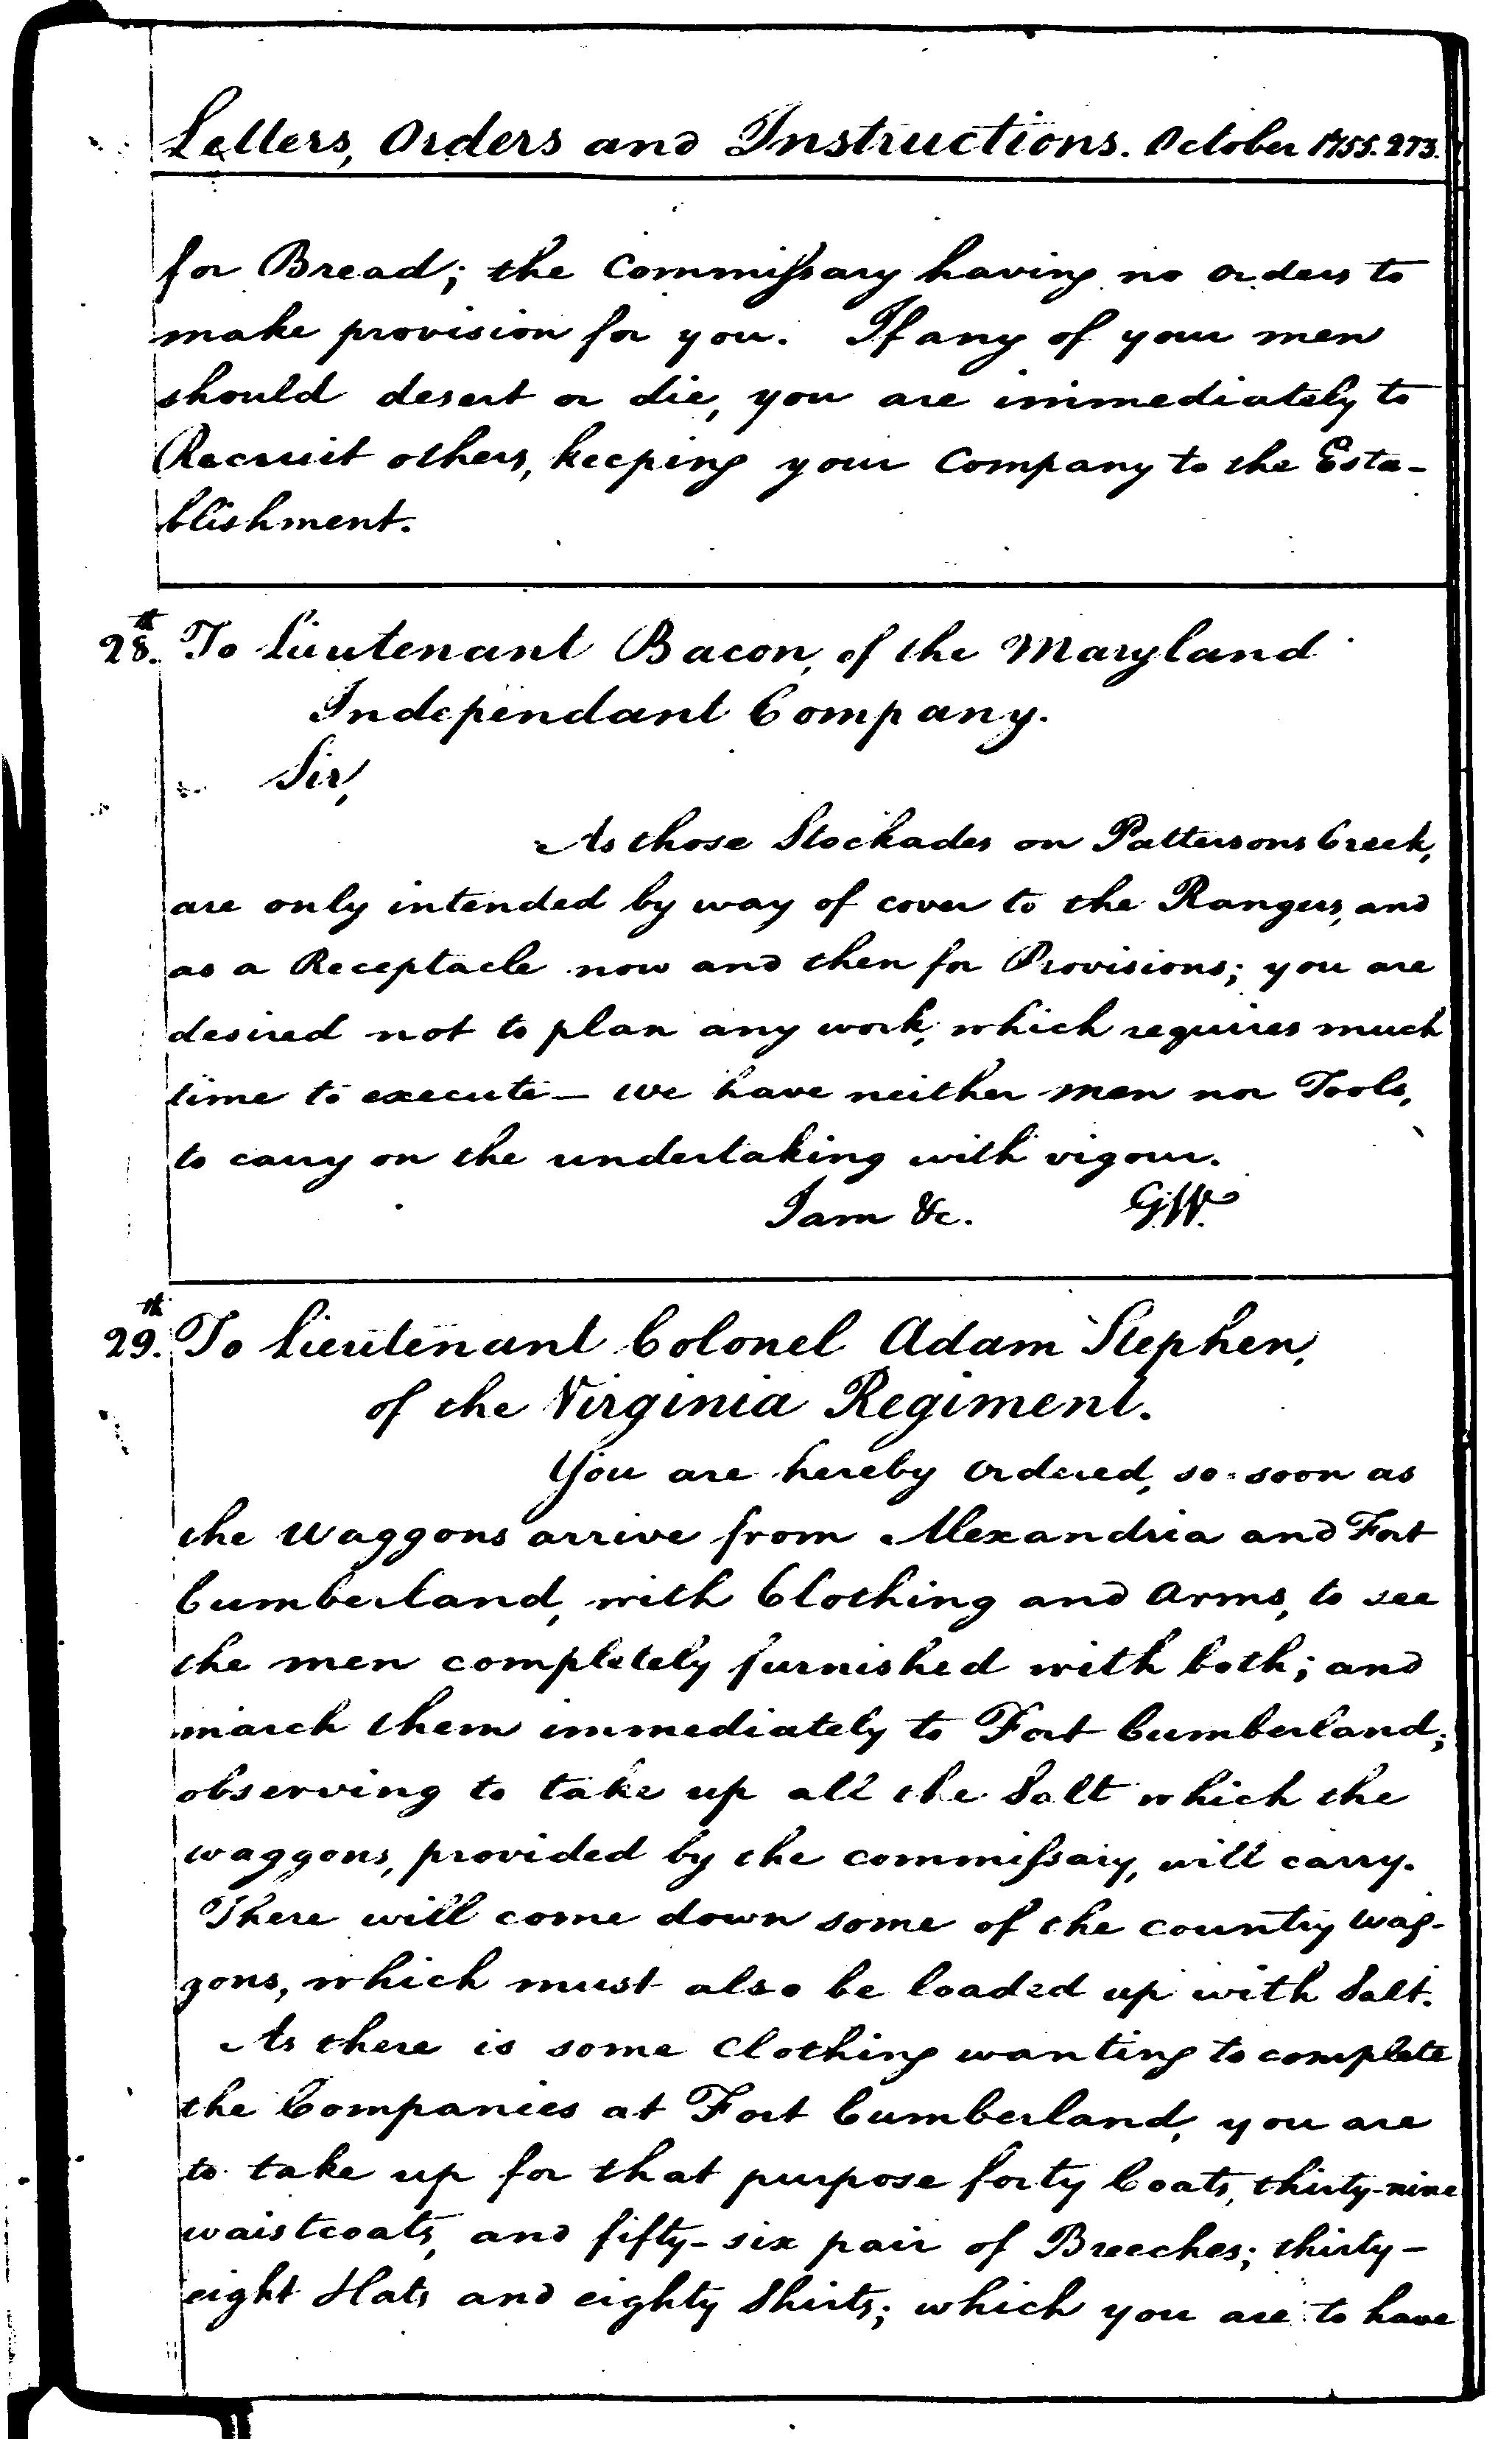 Letters, Orders and Instructions. October 1755. 273.
for Bread; the Commissary having no orders to
make provision for you. If any of your men
should desert or die, you are immediately to
Recruit others, keeping your Company to the Esta-
blishment.
28.th To Lieutenant Bacon, of the Maryland
Independant Company.
Sir,
As those Stockades on Pattersons Creek,
are only intended by way of cover to the Rangers, and
as a Receptacle now and then for Provisions; you are
desired not to plan any work, which requires much
time to execute — we have neither men nor Tools,
to carry on the undertaking with vigour.
I am &c. G:W.
29.th To Lieutenant Colonel Adam Stephen,
of the Virginia Regiment.
You are hereby ordered, so soon as
the Waggons arrive from Alexandria and Fort
Cumberland, with Clothing and Arms, to see
the men completely furnished with both; and
march them immediately to Fort Cumberland;
observing to take up all the Salt which the
waggons, provided by the commissary, will carry.
There will come down some of the country wag-
gons, which must also be loaded up with Salt.
As there is some Clothing wanting to complete
the Companies at Fort Cumberland, you are
to take up for that purpose forty Coats, thirty-nine
waistcoats, and fifty-six pair of Breeches; thirty-
eight Hats and eighty Shirts; which you are to have